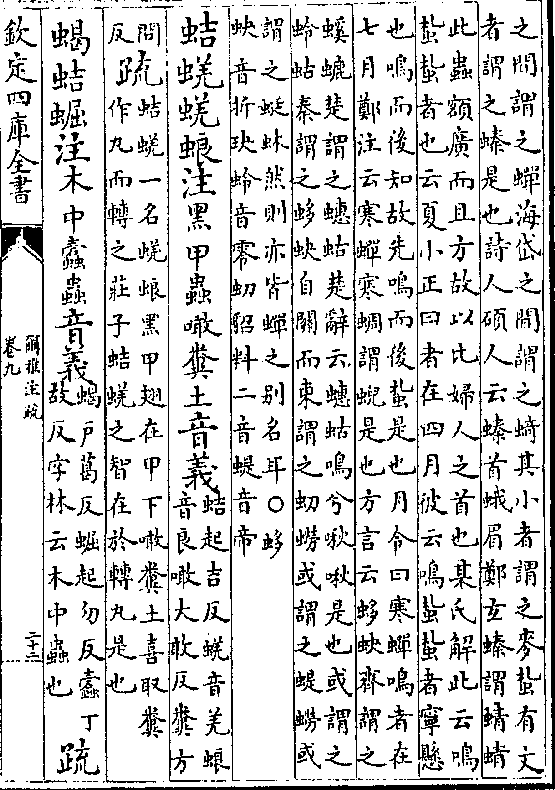 之間謂之蟬海岱之間謂之䗁其小者謂之麥蚻有文
者謂之螓是也詩人碩人云螓首蛾眉鄭玄螓謂蜻蜻
此蟲額廣而且方故以比婦人之首也某氏解此云鳴
蚻蚻者也云夏小正曰者在四月彼云鳴蚻蚻者寧懸
也鳴而後知故先鳴而後蚻是也月令曰寒蟬鳴者在
七月鄭注云寒蟬寒蜩謂蜺是也方言云蛥蚗齊謂之
螇螰楚謂之蟪蛄楚辭云蟪蛄鳴兮啾啾是也或謂之
蛉蛄秦謂之蛥蚗自關而東謂之虭蟧或謂之蝭蟧或
謂之蜓蚞然則亦皆蟬之别名耳○蛥
蚗音折玦蛉音零虭貂料二音蝭音帝
蛣蜣蜣蜋注黑甲蟲噉糞土音義蛣起吉反蜣音羌蜋
音良噉大敢反糞方
問反疏蛣蜣一名蜣蜋黑甲翅在甲下噉糞土喜取糞
作丸而轉之莊子蛣蜣之智在於轉丸是也
蝎蛣𧌑注木中蠹蟲音義蝎户葛反𧌑起勿反蠹丁
故反字林云木中蟲也疏
欽定四庫全書
爾雅注疏
卷九
二十二